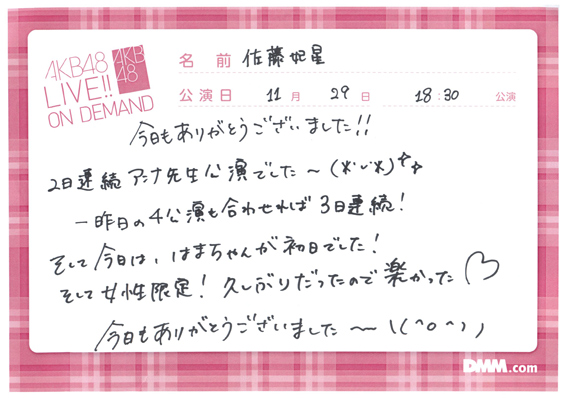 AKB48
LIVE!!
ON DEMAND
AKB
48
名 前 佐藤妃星
公演日 11月 29日 18:30 公演
今日もありがとうございました!!
2日連続 アンナ先生公演でした〜(*˘︶˘*)
一昨日の4公演も合わせれば 3日連続!
そして今日は、はまちゃんが初日でした!
そして女性限定! 久しぶりだったので楽かった♡
今日もありがとうございました〜\(^o^)丿
DMM.com